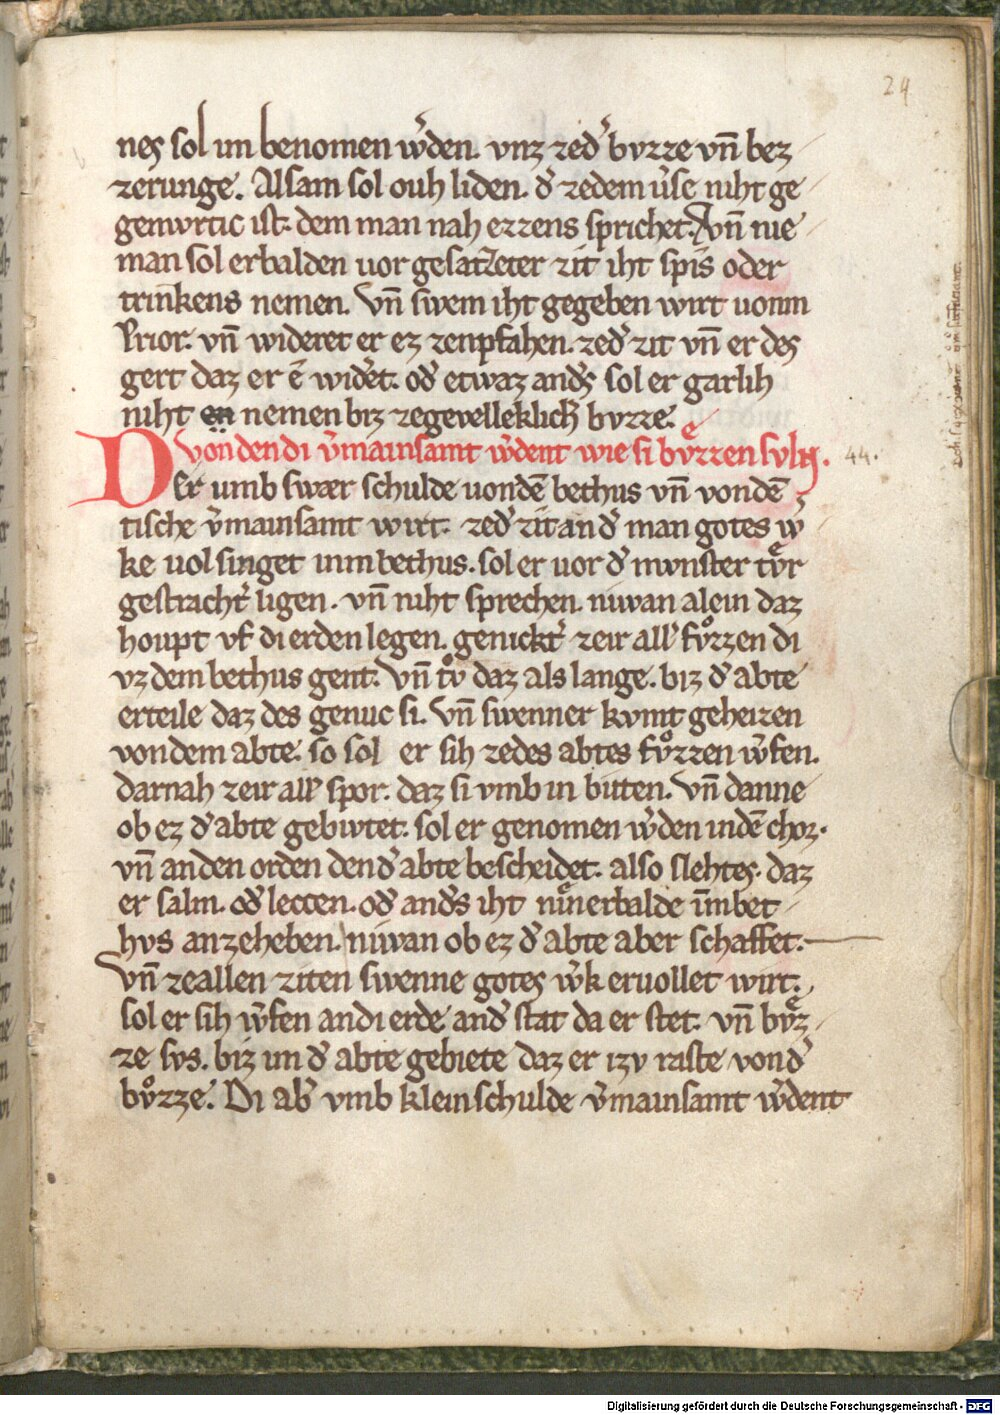 24
nes sol im benomen w̓den. vnz zed̓ bvzze vn̄ bez
zerunge. Alsam sol ouh liden. d̓ zedem v̓se niht ge
genwrtic ist. dem man nah ezzens sprichet. Vn̄ nie
man sol erbalden uor gesatzeter zit iht spis oder
trinkens nemen. Vn̄ swem iht gegeben wirt uonm
Prior. vn̄ wideret er ez zenpfahen. zed̓ zit vn̄ er des
gert daz er ē wid̓et. od̓ etwaz and̓s sol er garlih
niht nemen biz zegevelleklich̓ bvzze.
von den di v̓mainsamt w̓dent wie si bvͤzzen svln. 44.
Der umb swær schulde uondē bethus vn̄ vondē
tische v̓mainsamt wirt. zed̓ zit and̓ man gotes w̓
ke uol singet inm bethus. sol er uor d̓ mvnster tvͤr
gestracht̓ ligen. vn̄ niht sprechen. niwan alein daz
houpt vf di erden legen. genickt̓ zeir all̓ fvͦzzen di
vz dem bethus gent. Vn̄ tvͦ daz als lange. biz d̓ abte
erteile daz des genuc si. Vn̄ swenner kvmt geheizen
vondem abte. so sol er sih zedes abtes fvͦzzen w̓fen.
darnah zeir all̓ spor. daz si vmb in bitten. Vn̄ danne
ob ez d̓ abte gebivtet. sol er genomen w̓den indē chor.
vn̄ anden orden den d̓ abte bescheidet. also slehtes. daz
er salm. od̓ leccen. od̓ and̓s iht nihͤn erbalde īmbet
hvs anzeheben. niwan ob ez d̓ abte aber schaffet.
Vn̄ zeallen ziten swenne gotes w̓k eruollet wirt.
sol er sih w̓fen andi erde and̓ stat da er stet. vn̄ bvͤz
ze svs. biz im d̓ abte gebiete daz er izv raste vond̓
bvͦzze. Di ab̓ vmb klein schulde v̓mainsamt w̓dent
Digitalisierung gefördert durch die Deutsche Forschungsgemeinschaft - DFG